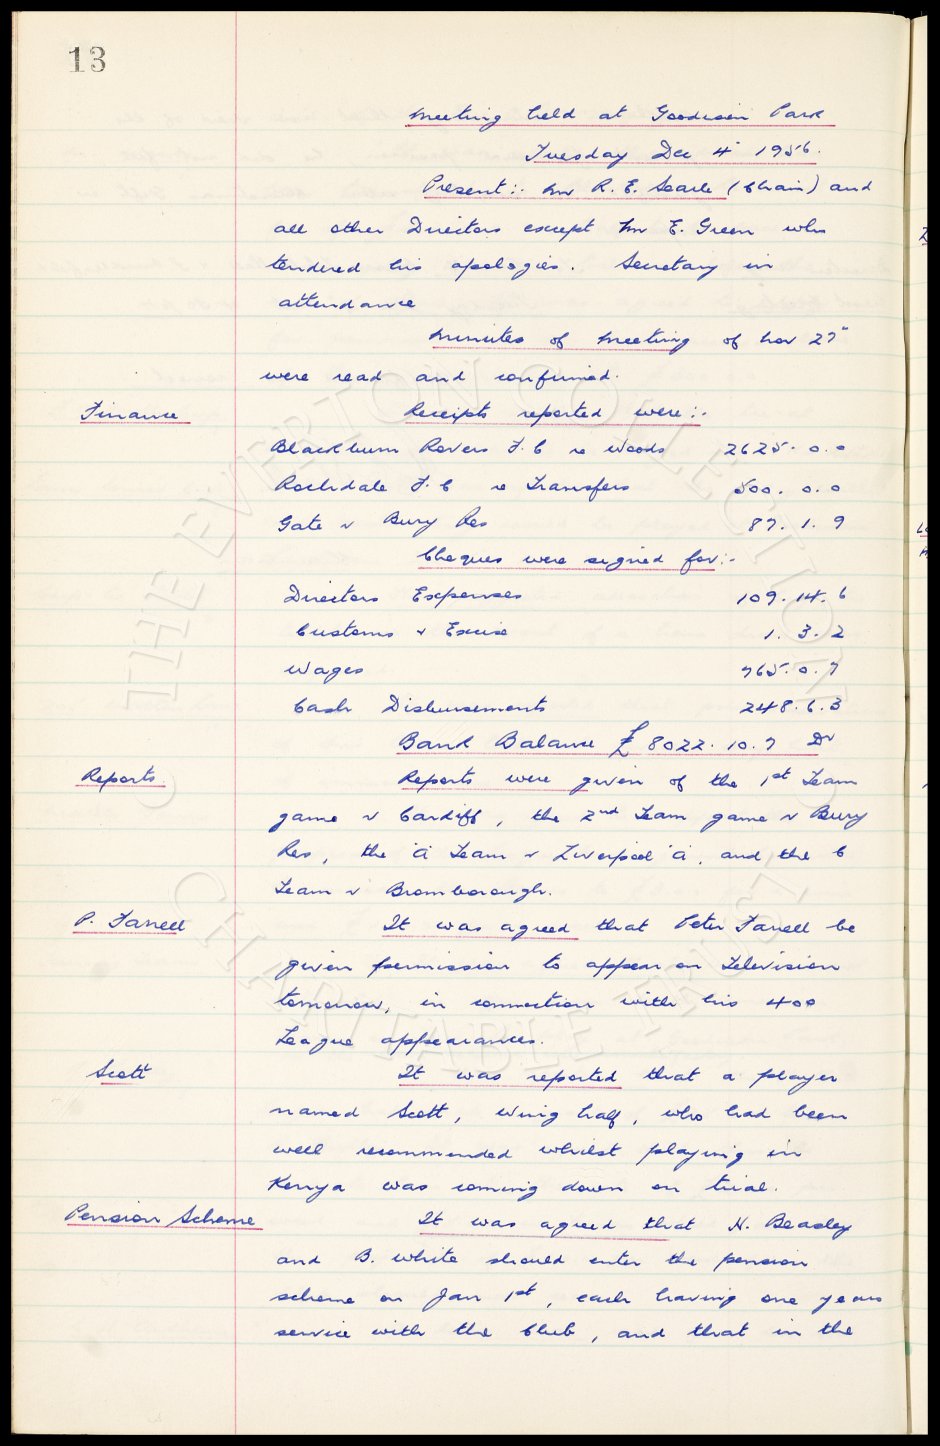 13
Meeting held at Goodison Park
Tuesday Dec 4" 1956.
Present:- Mr R. E. Searle (Chair) and
all other Directors except Mr E. Green who
tendered his apologies. Secretary in
attendance
Minutes of Meeting of Nov 27"
were read and confirmed.
Finance Receipts reported were:-
Blackburn Rovers F.C re Woods 2625. 0. 0
Rochdale F.C re Transfers 500. 0. 0
Gate v Bury Res 87. 1. 9
Cheques were signed for:-
Directors Expenses 109. 14. 6
Customs & Excise 1. 3. 2
Wages 965. 0. 7
Cash Disbursements 248. 6. 3
Bank Balance £8022. 10. 7 Dr
Reports. Reports were given of the 1st Team
game v Cardiff, the 2nd Team game v Bury
Res, the 'A' Team v Liverpool 'A', and the C
Team v Bromborough.
P. Farrell It was agreed that Peter Farrell be
given permission to appear on Television
tomorrow, in connection with his 400
League appearances.
Scott It was reported that a player
named Scott, wing half, who had been
well recommended whilst playing in
Kenya was coming down on trial.
Pension Scheme It was agreed that H. Beasley
and B. White should enter the pension
scheme on Jan 1st, each having one years
service with the Club, and that in the
© THE EVERTON COLLECTION
CHARITABLE TRUST